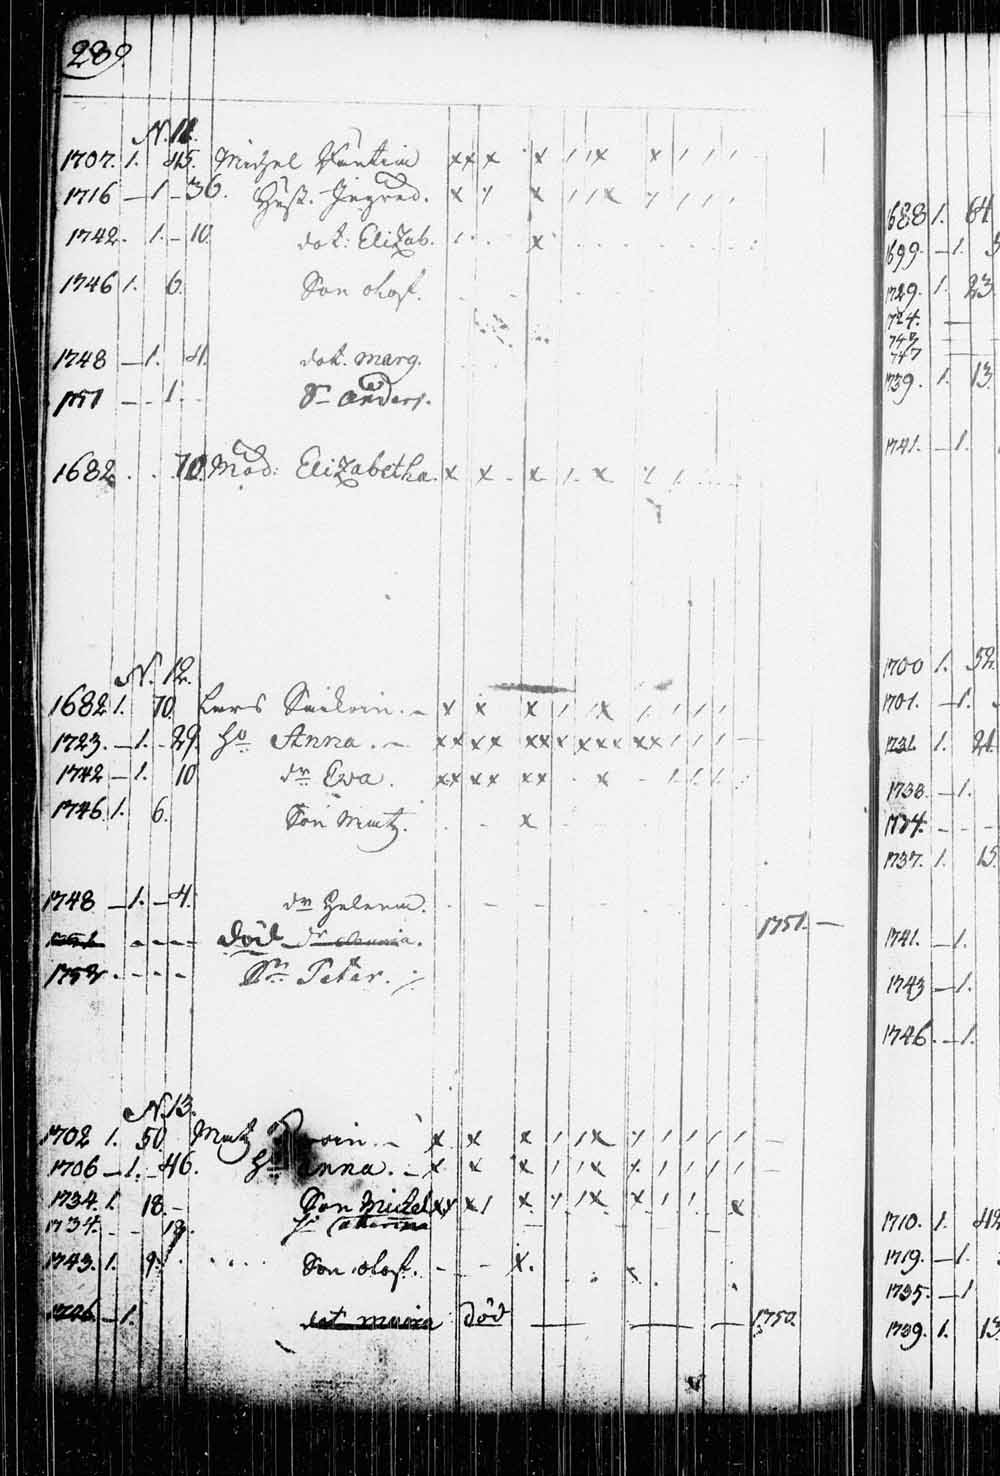 289.
N. 11.
1707. 1. 45. Michel x x x x / / x x / / /
1716 – 1 – 36. Hust. Ingred. x / x / / x / / / /
1742. 1. – 10. dot: Elizab. / x
1746 1. 6. Son olof.
1748 – 1. 4. dot. Marg.
1751 – 1. S– anders.
1682 70. Mod: Elizabetha. x x x / x / /
N. 12.
1682 1. 70. Lars x x x / / x / / / / /
1723. – 1. – 29. Ho Anna. x x x x x x x x x x x x / / /
1742 – 1. 10 dr Ewa. x x x x x x x / / /
1746 1. 6. Son Matz. x
1748 – 1. – 4. dr Helena.
död dr 1751. –
1752. Sn Petter.
N. 13.
1702 1. 50. Matz x x x / / x / / / / /
1706 – 1. – 46. H– Anna. x x x / / x / / / / /
1734. 1. 18. – Son Michel x x x / x / / x x / / x
1734. 18. H– Catharina
1743. 1. 9. Son olof. x.
1746 – 1. dot maria död 1750.
1688 1. 64
1699. – 1.
1729. 1. 23
1724.
1743
1747
1739. 1. 13
1741. – 1.
1700 1. 52.
1701. – 1.
1731. 1. 21.
1738. – 1.
1737. 1. 15.
1741. – 1.
1743 – 1.
1746. – 1.
1710. 1. 42
1719. – 1.
1735. – 1
1739. 1. 13